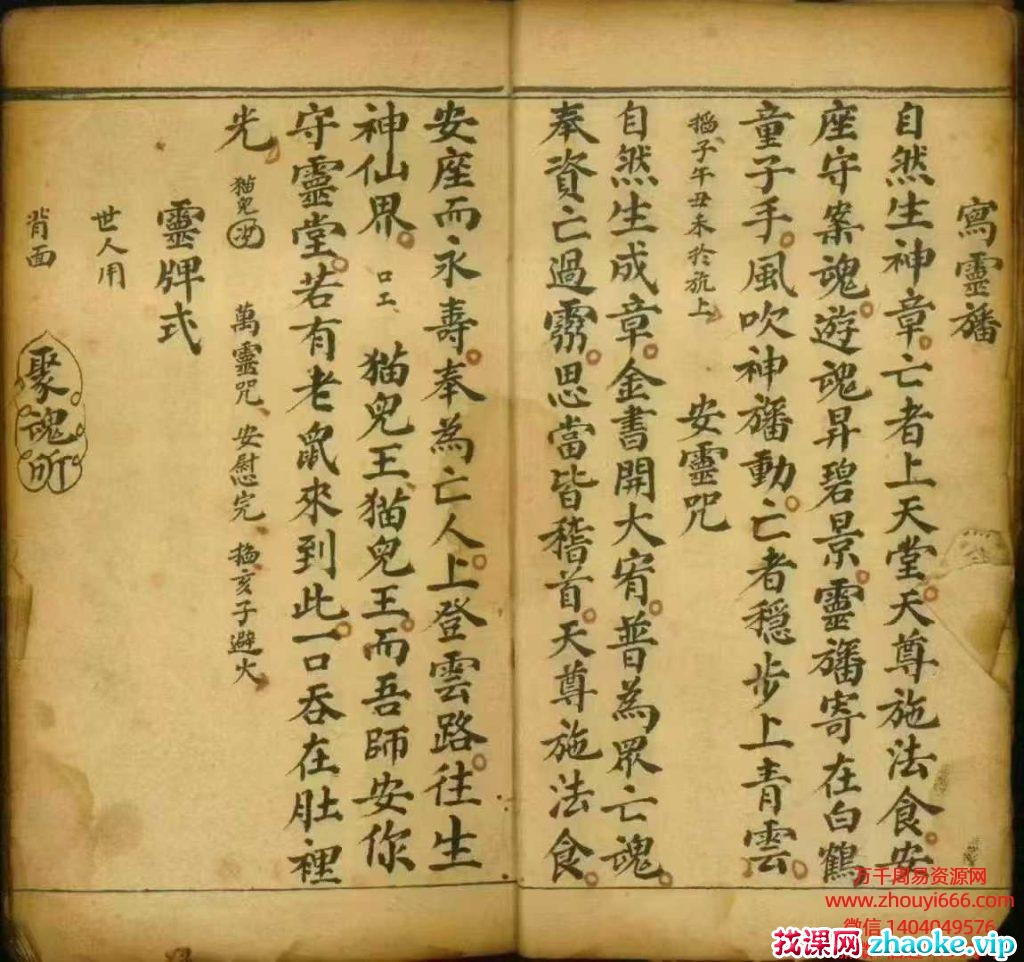 寫靈旛
自然生神章亡者上天堂天尊施法食安
座守案魂遊魂昇碧景靈旛寄在白鶴
童子手風吹神旛動亡者穩步上青雲
搯子午丑未於旂上 安靈咒
自然生成章金書開大宥普為眾亡魂
奉資亡過靈思當皆稽首天尊施法食
安座而永壽奉為亡人上登雲路往生
神仙界 口工 猫兒王猫兒王而吾師安你
守靈堂若有老鼠來到此一口吞在肚裡
光 猫兒 萬靈咒 安慰完 搯亥子避火
靈牌式
世人用
背面 聚魂所
万千周易资源网
www.zhouyi666.com
微信1404049576
找课网 zhaoke.vip